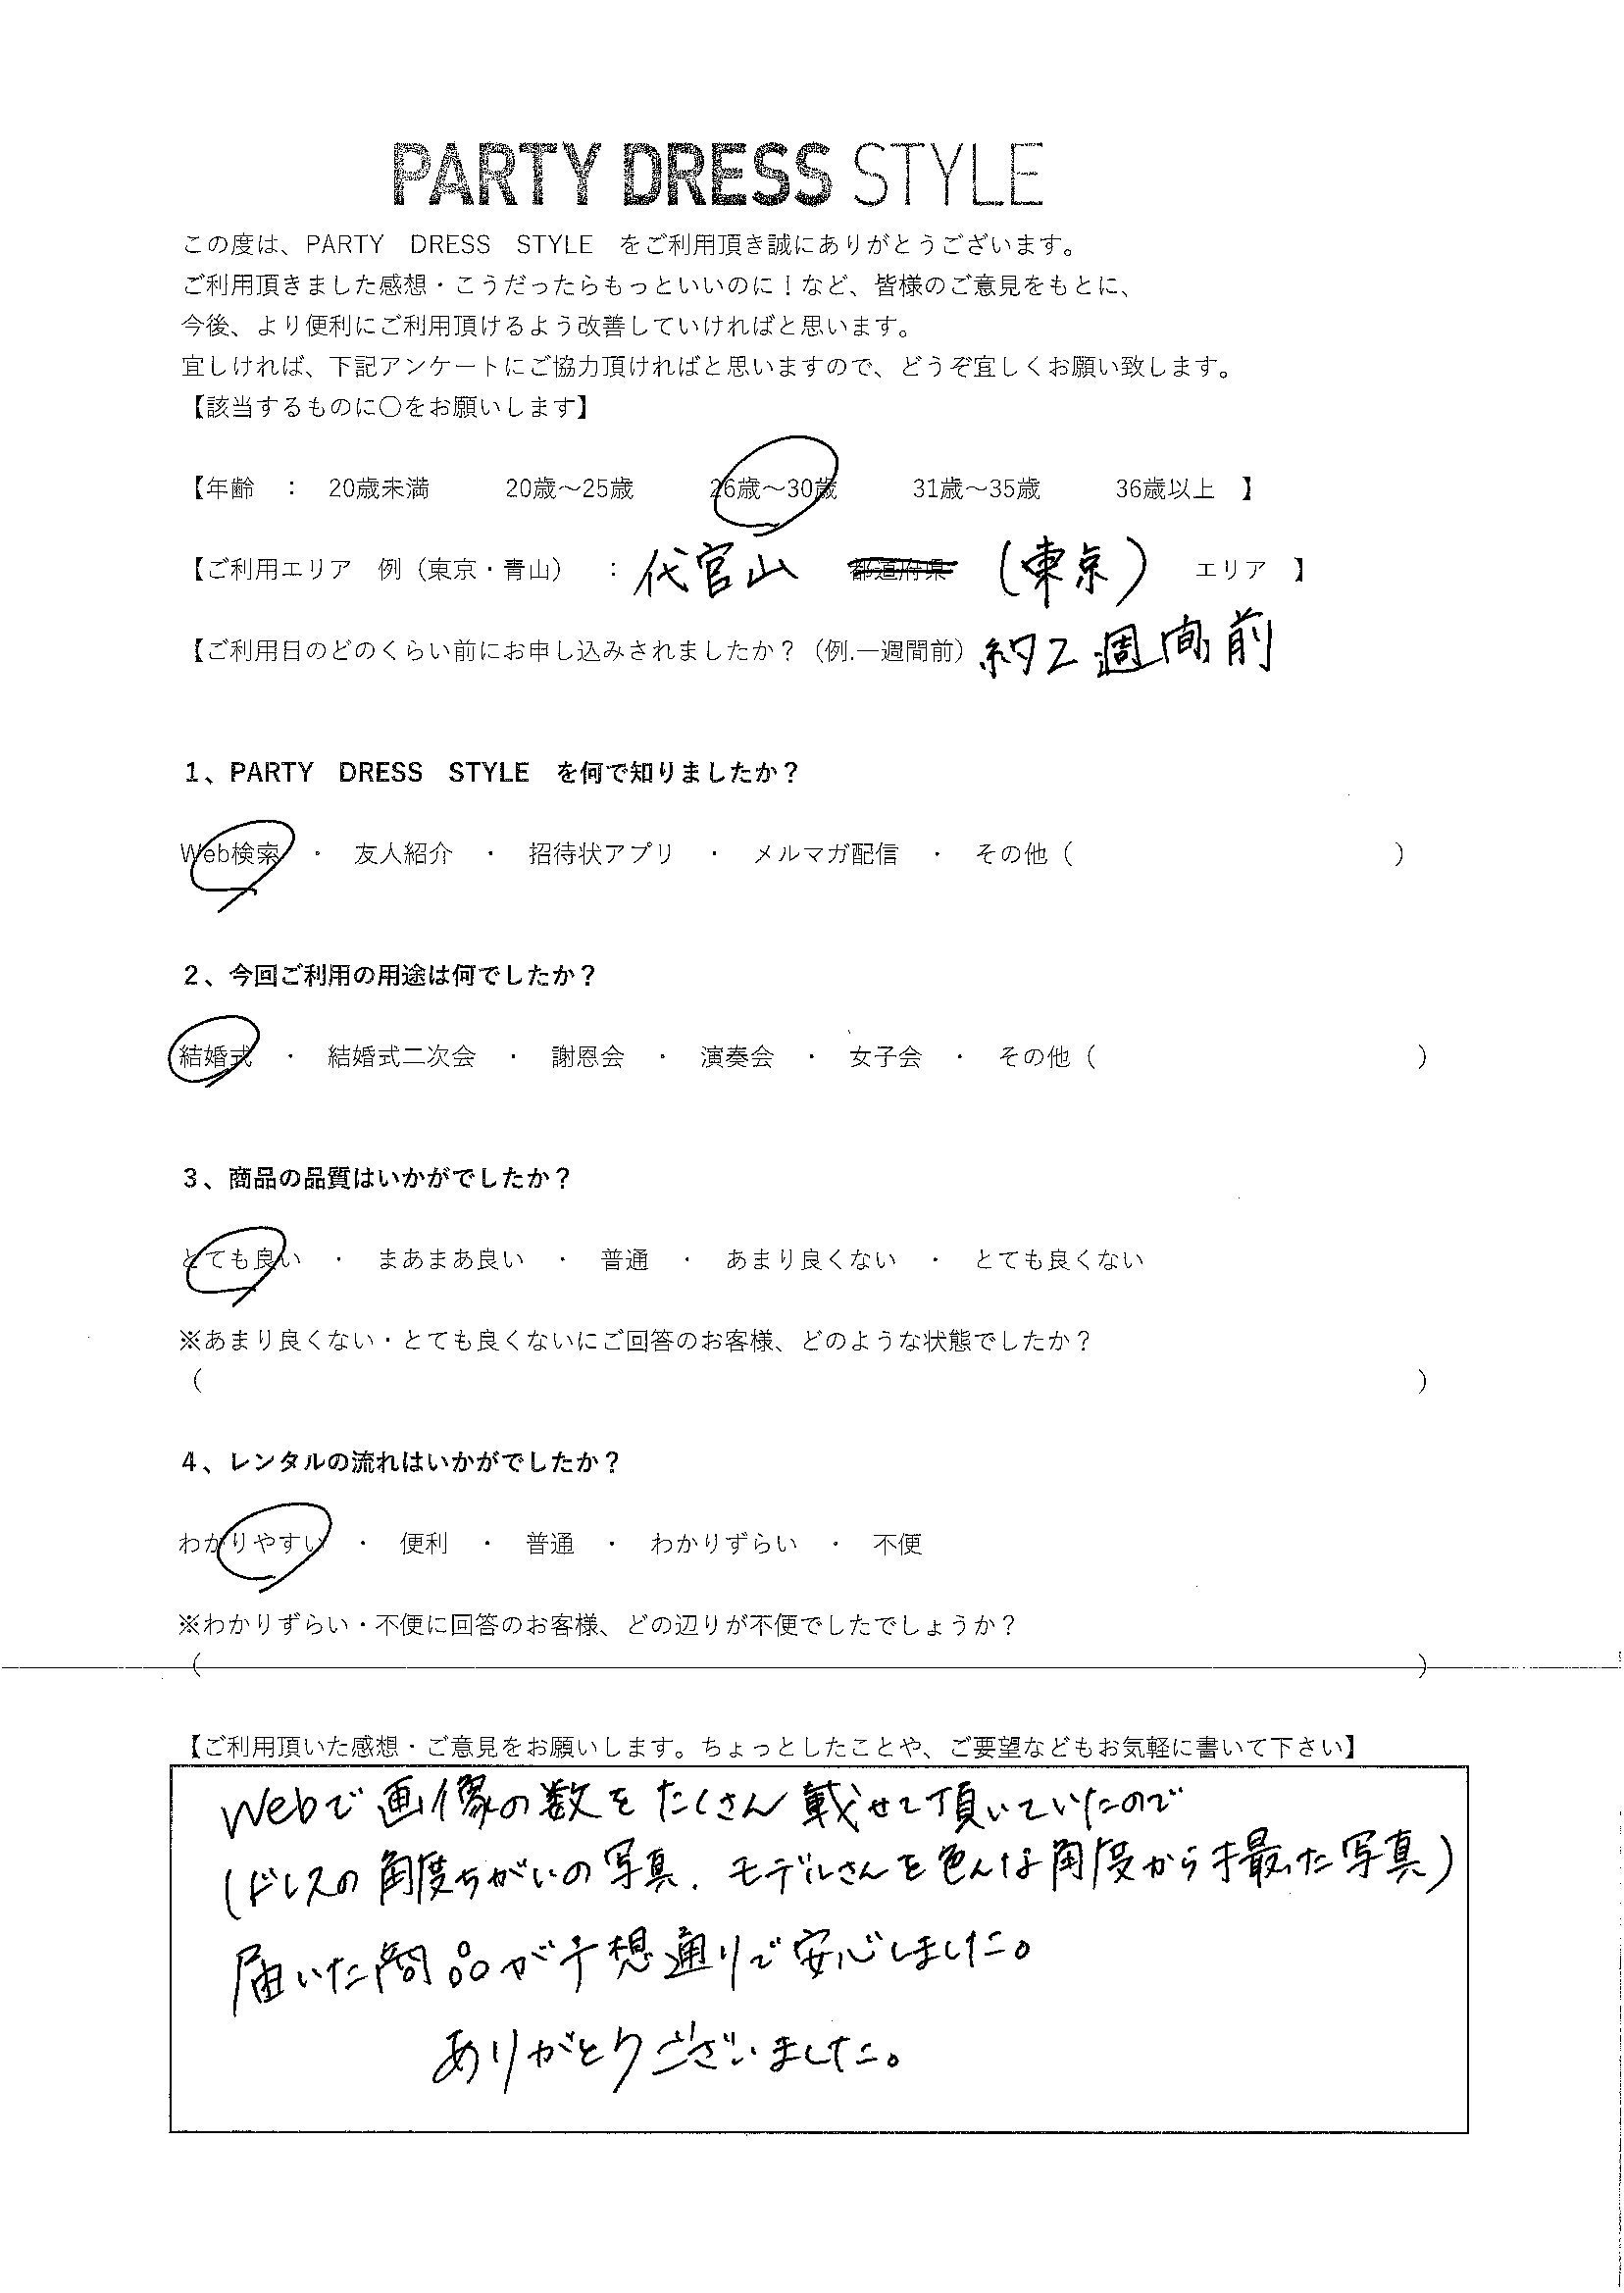 PARTY DRESS STYLE
この度は、PARTY　DRESS　STYLE　をご利用頂き誠にありがとうございます。
ご利用頂きました感想・こうだったらもっといいのに！など、皆様のご意見をもとに、
今後、より便利にご利用頂けるよう改善していければと思います。
宜しければ、下記アンケートにご協力頂ければと思いますので、どうぞ宜しくお願い致します。
【該当するものに〇をお願いします】
【年齢　：　20歳未満　　　20歳～25歳　　　26歳～30歳　　　31歳～35歳　　　36歳以上　】
【ご利用エリア　例（東京・青山）　：代官山　都道府県（東京）　エリア　】
【ご利用日のどのくらい前にお申し込みされましたか？（例.一週間前）約2週間前
１、PARTY　DRESS　STYLE　を何で知りましたか？
Web検索　・　友人紹介　・　招待状アプリ　・　メルマガ配信　・　その他（　　　　　　　　　　　　　）
２、今回ご利用の用途は何でしたか？
結婚式　・　結婚式二次会　・　謝恩会　・　演奏会　・　女子会　・　その他（　　　　　　　　　　　　　）
３、商品の品質はいかがでしたか？
とても良い　・　まあまあ良い　・　普通　・　あまり良くない　・　とても良くない
※あまり良くない・とても良くないにご回答のお客様、どのような状態でしたか？
（　　　　　　　　　　　　　　　　　　　　　　　　　　　　　　　　　　　　　　　　　　　　　　　　　）
４、レンタルの流れはいかがでしたか？
わかりやすい　・　便利　・　普通　・　わかりずらい　・　不便
※わかりずらい・不便に回答のお客様、どの辺りが不便でしたでしょうか？
（　　　　　　　　　　　　　　　　　　　　　　　　　　　　　　　　　　　　　　　　　　　　　　　　　）
【ご利用頂いた感想・ご意見をお願いします。ちょっとしたことや、ご要望などもお気軽に書いて下さい】
Webで画像の数をたくさん載せて頂いていたので
（ドレスの角度ちがいの写真、モデルさんを色んな角度から撮った写真）
届いた商品が予想通りで安心しました。
ありがとうございました。